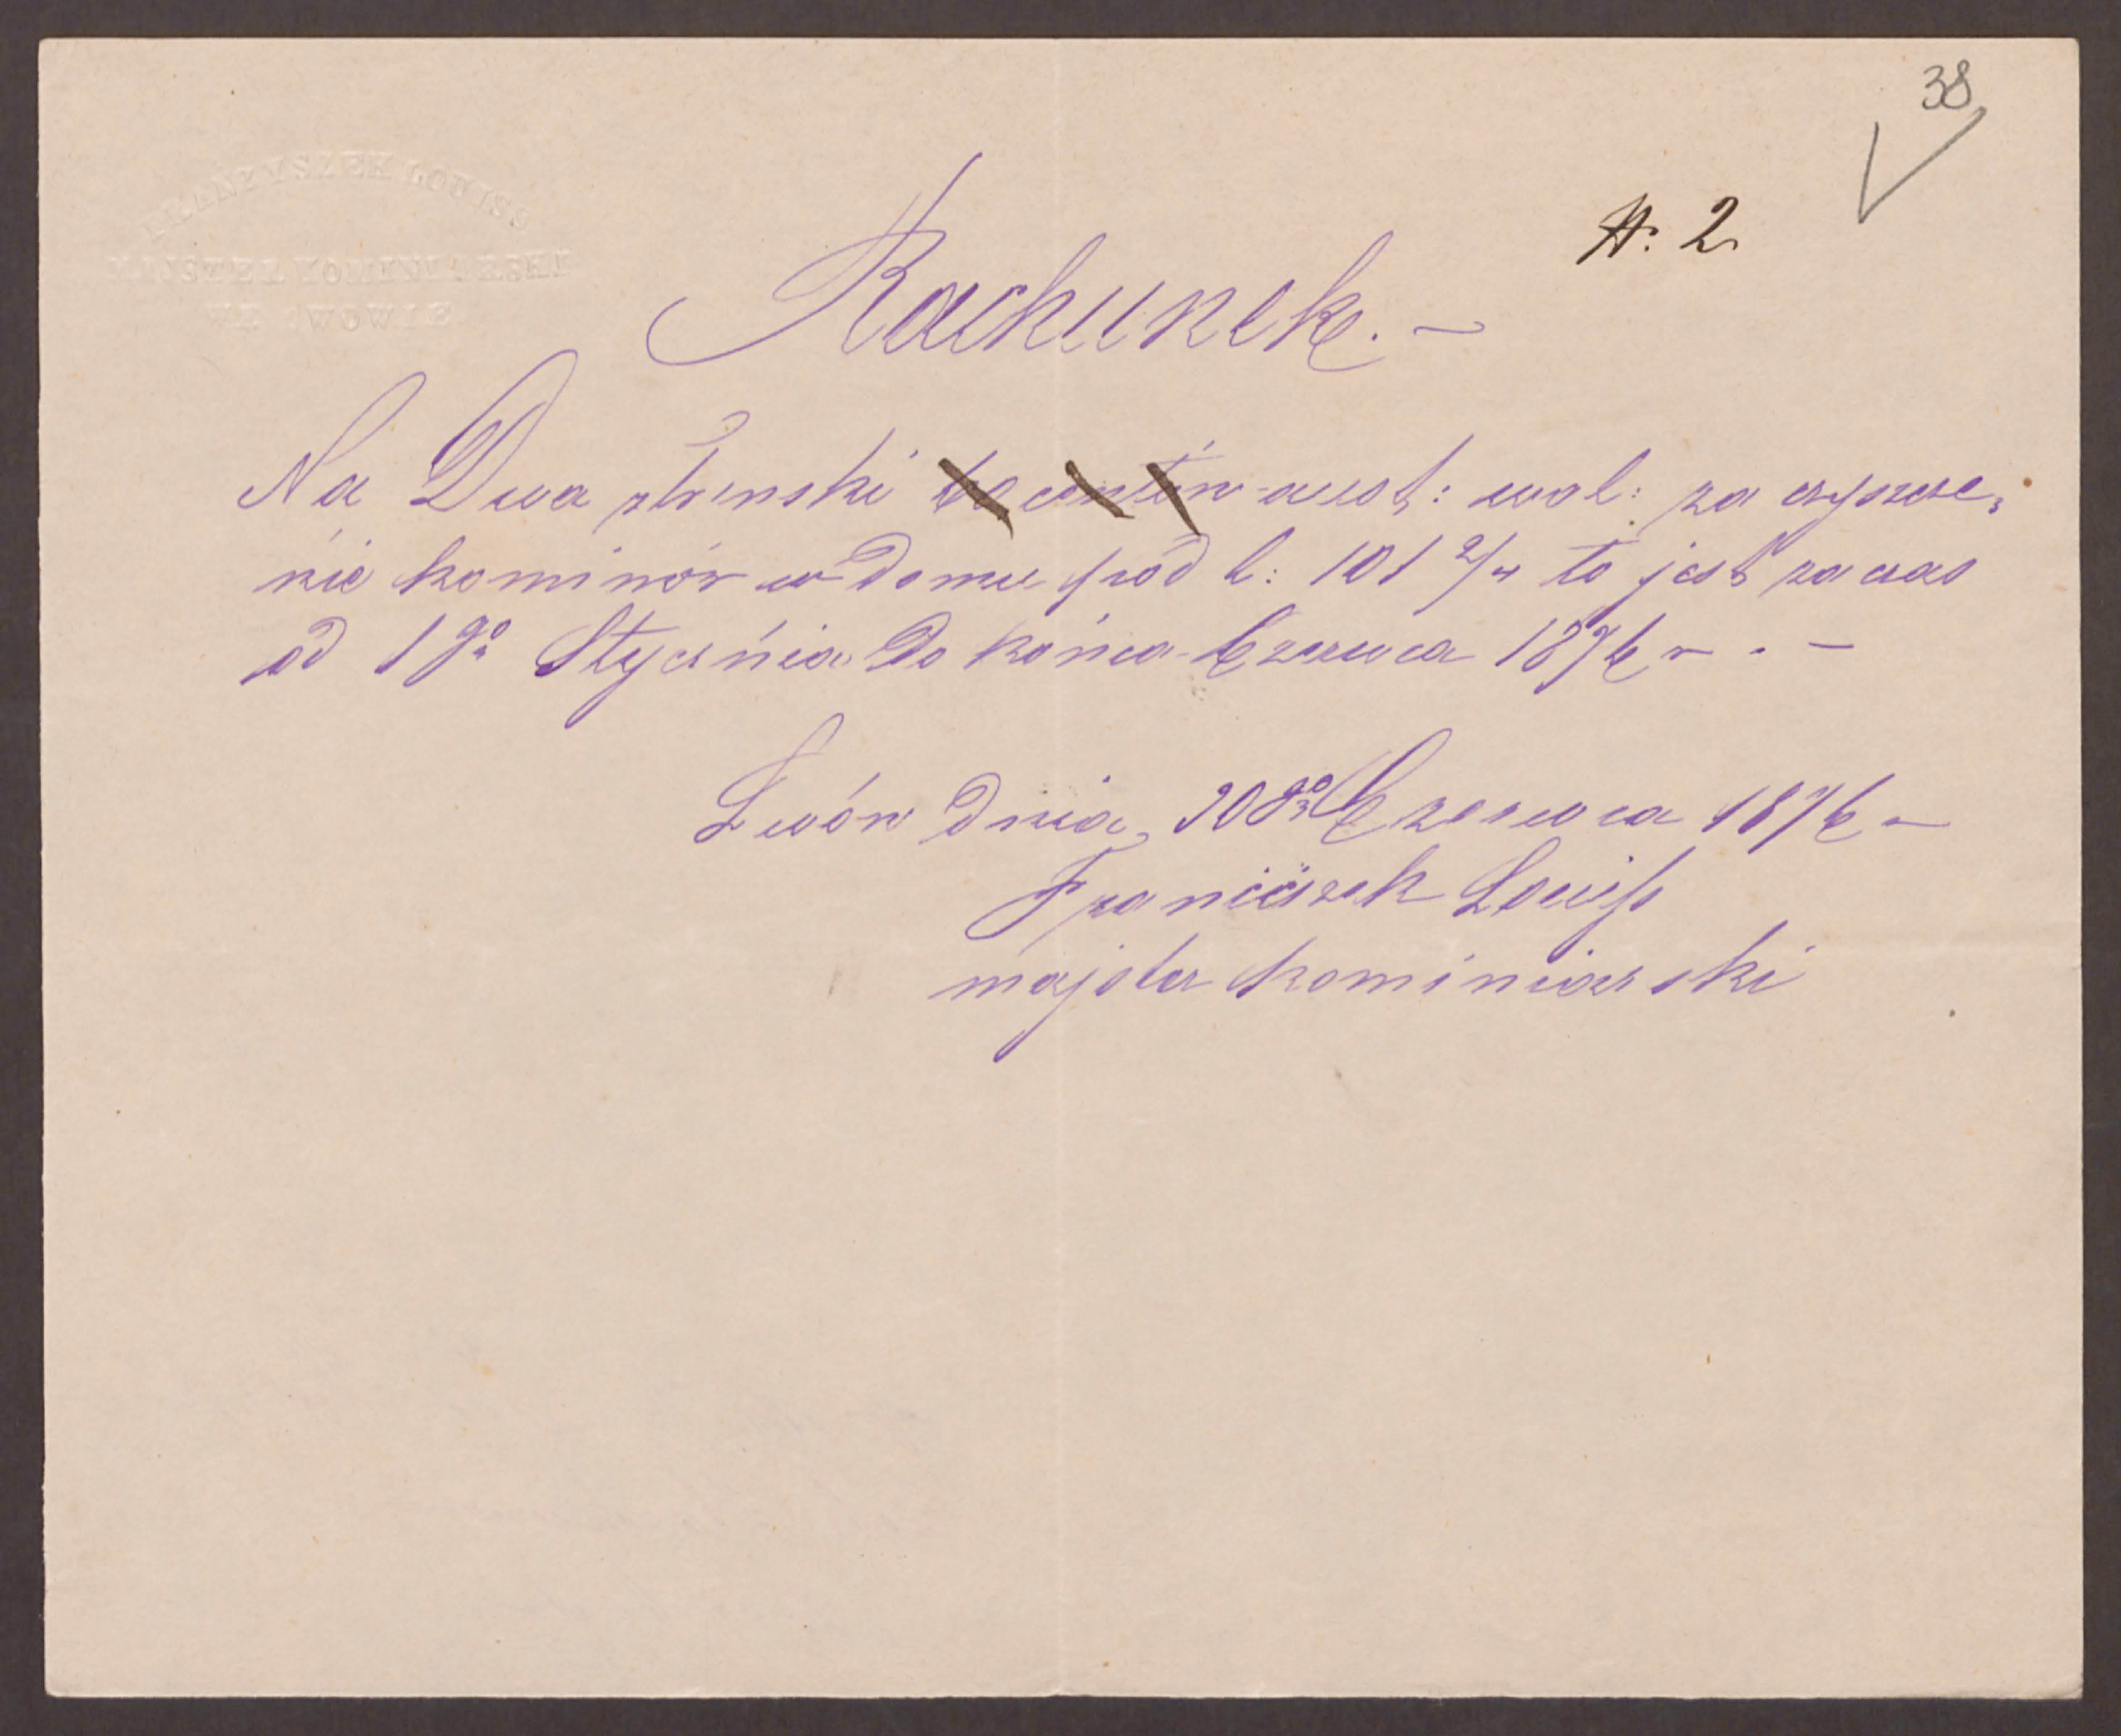 38
FRANZYSZEK LOUISS
MAJSTER KOMINIARSKI
WE LWOWIE
N. 2
Rachunek. –
Na Dwa złr. aust: wal: za czyszcze,
nie kominów w domu pód l: 101 2/4 to jest za czas
od 1go Stycznia do końca Czerwca 1876 r. –
Lwów dnia 20go Czerwca 1876 –
Franciszek Louiss
majster kominiarski